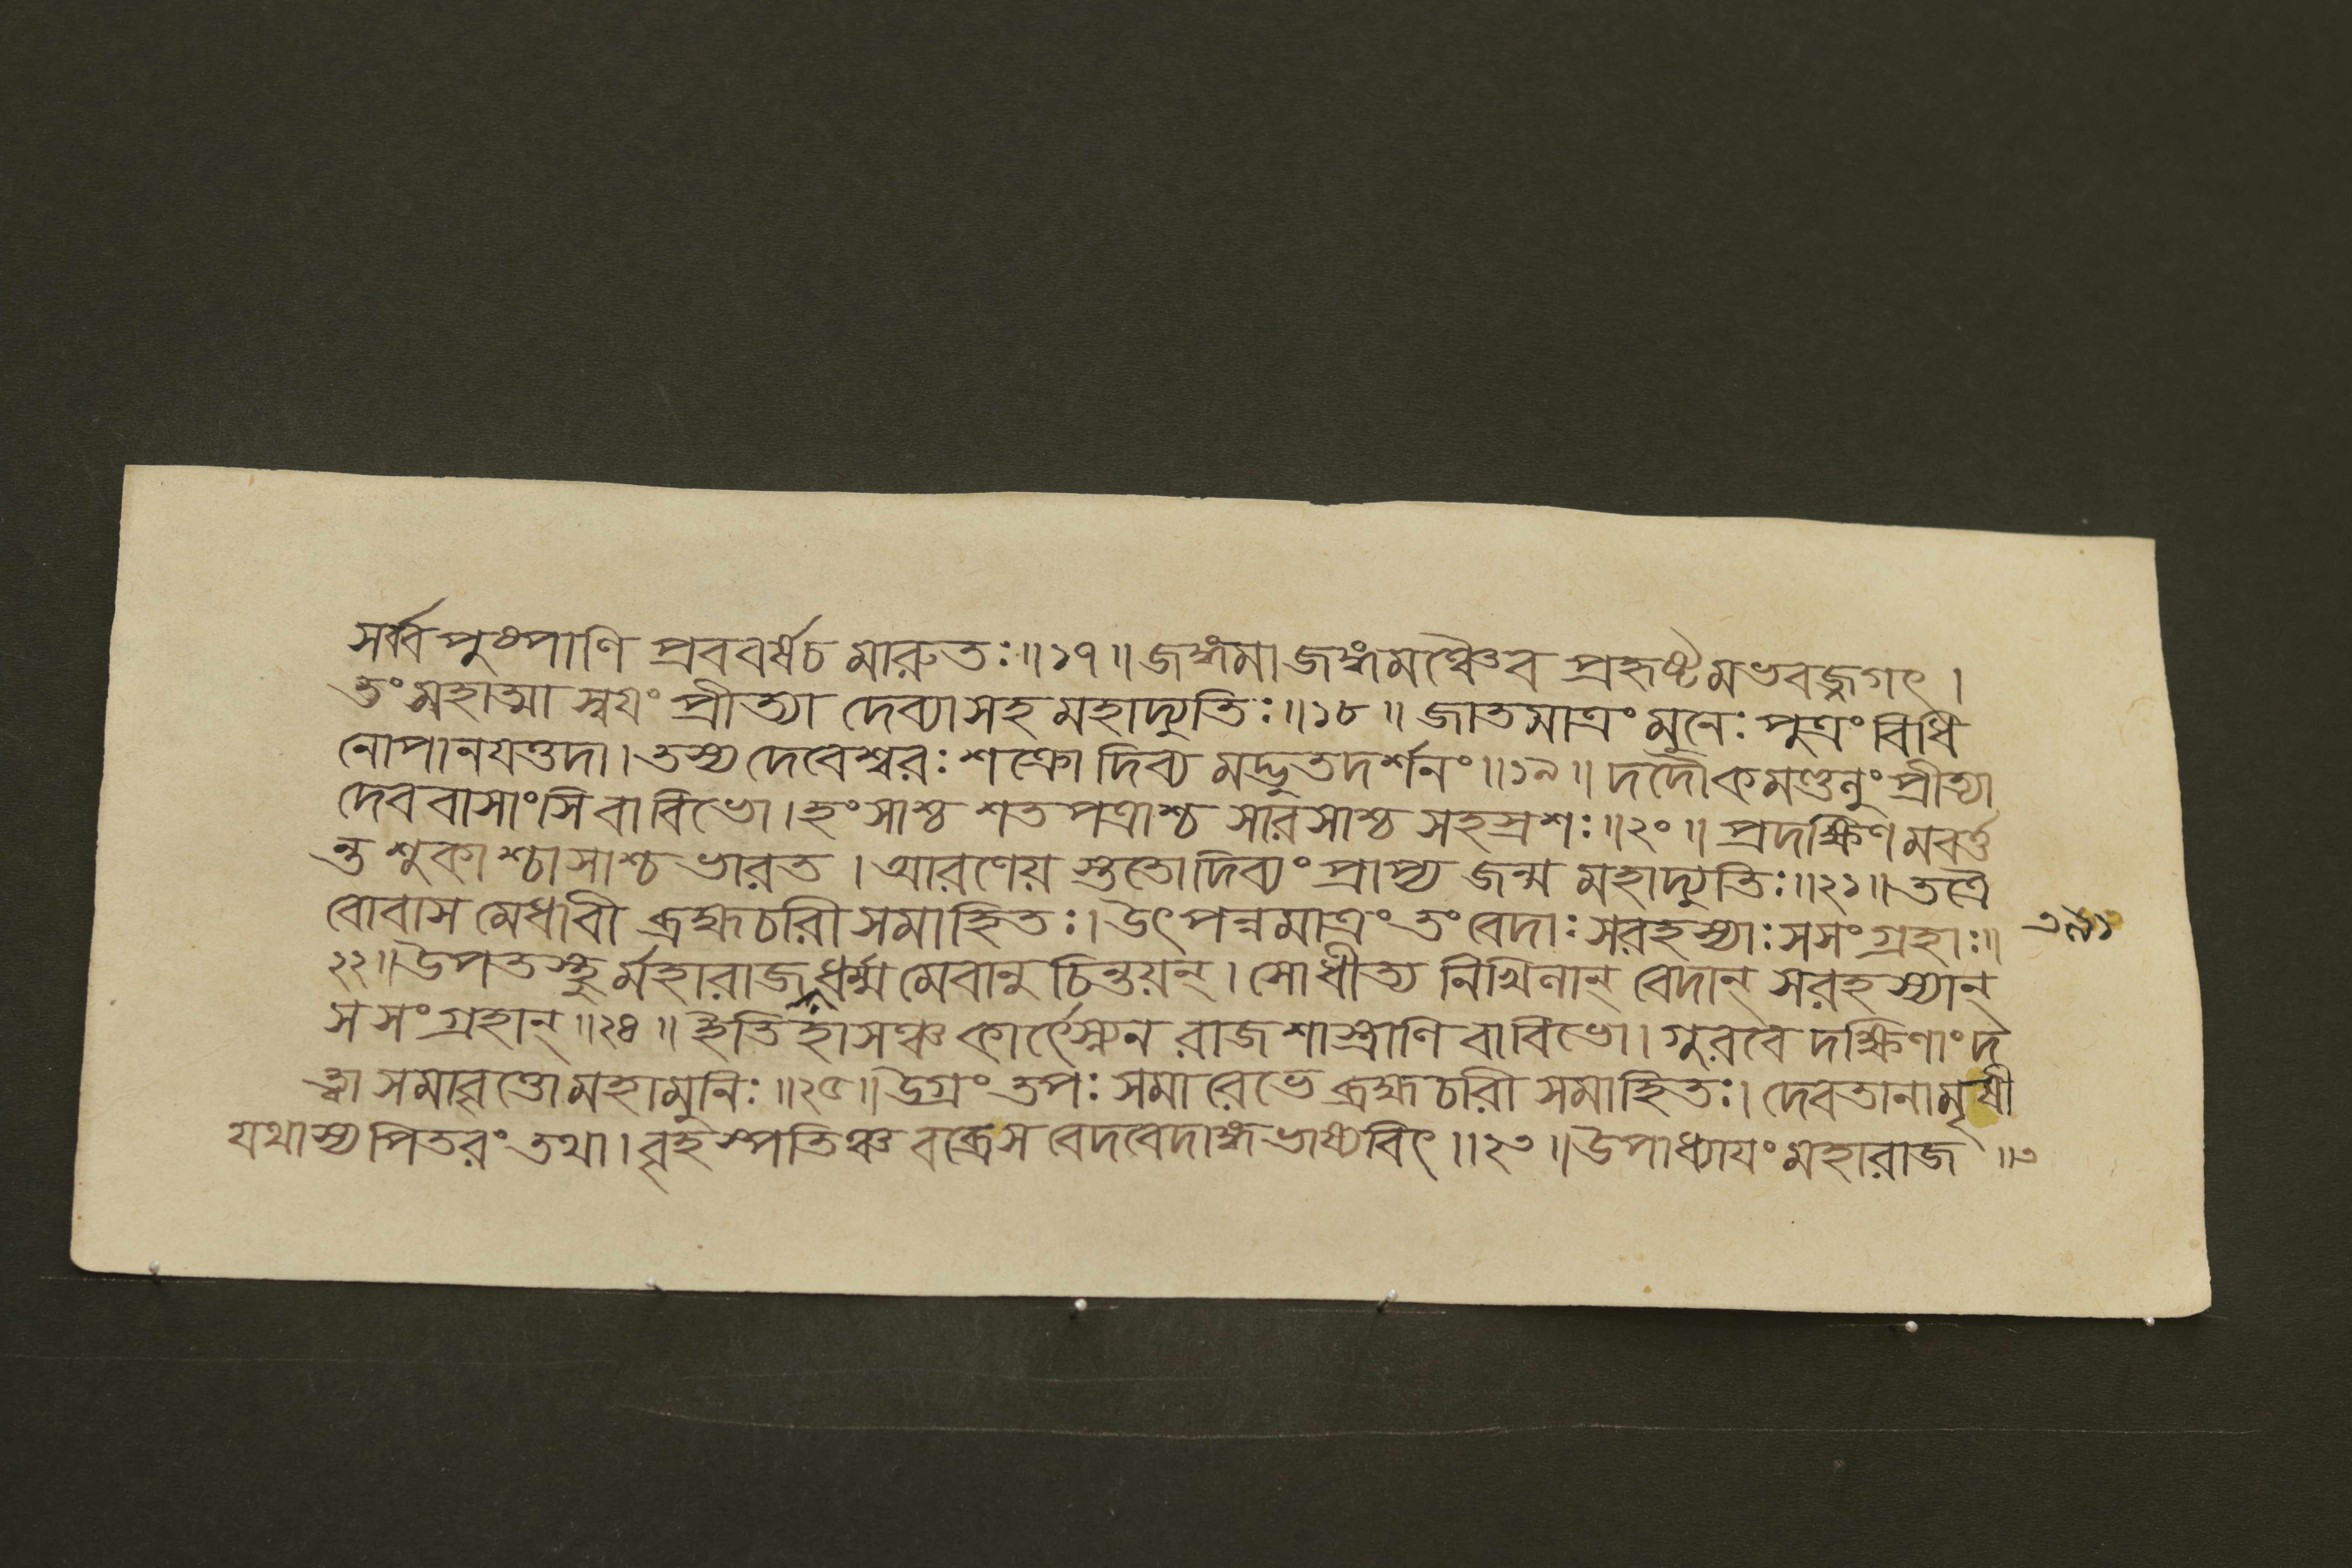 সর্ব্বপুষ্পাণি প্রববর্ষচ মারুতঃ॥১৭॥ জঙ্গমা জঙ্গমঞ্চৈব প্রহৃষ্টমভবজ্জগৎ।
তং মহাত্মা স্বযং প্রীত্যা দেব্যাসহ মহাদ্যুতিঃ॥১৮॥ জাতমাত্রং মুনেঃ পুত্রং বিধি
নোপানযত্তদা। তস্য দেবেশ্বরঃ শক্রো দিব্য মদ্ভুতদর্শনং॥১৯॥ দদৌকমণ্ডলুং প্রীত্যা
দেববাসাংসি বাবিভো। হংসাশ্চ শতপত্রাশ্চ সারসাশ্চ সহস্রশঃ॥২০॥ প্রদক্ষিণমবর্ত্ত
ন্ত শুকাশ্চাসাশ্চ ভারত। আরণেয় স্ততো দিব্যং প্রাপ্য জন্ম মহাদ্যুতিঃ॥২১॥ তত্রৈ
বোবাস মেধাবী ব্রহ্মচারী সমাহিতঃ। উৎপন্নমাত্রং তং বেদাঃ সরহস্যাঃ সসংগ্রহাঃ॥
২২॥ উপতস্থুর্মহারাজ ধর্ম্মমেবানু চিন্তয়ন্। সোধীত্য নিখিলান্ বেদান্ সরহস্যান্
সসংগ্রহান্॥২৪॥ ইতিহাসঞ্চ কার্ৎস্নেন রাজশাস্ত্রাণি বাবিভো। গুরবে দক্ষিণাং দ
ত্ত্বা সমাবৃত্তো মহামুনিঃ॥২৫॥ উগ্রং তপঃ সমারেভে ব্রহ্মচারী সমাহিতঃ। দেবতানামৃষী
যথাস্য পিতরং তথা। বৃহস্পতিঞ্চ বব্রেস বেদবেদাঙ্গ ভাষ্যবিৎ॥২৩॥ উপাধ্যাযং মহারাজ ॥৩